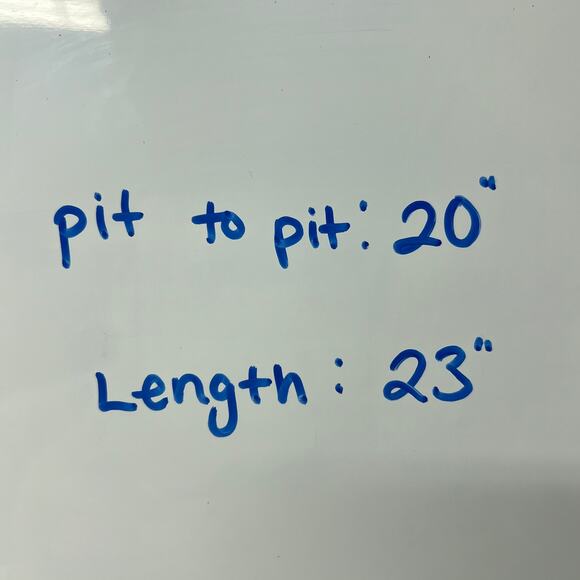 pit to pit: 20"
Length: 23"